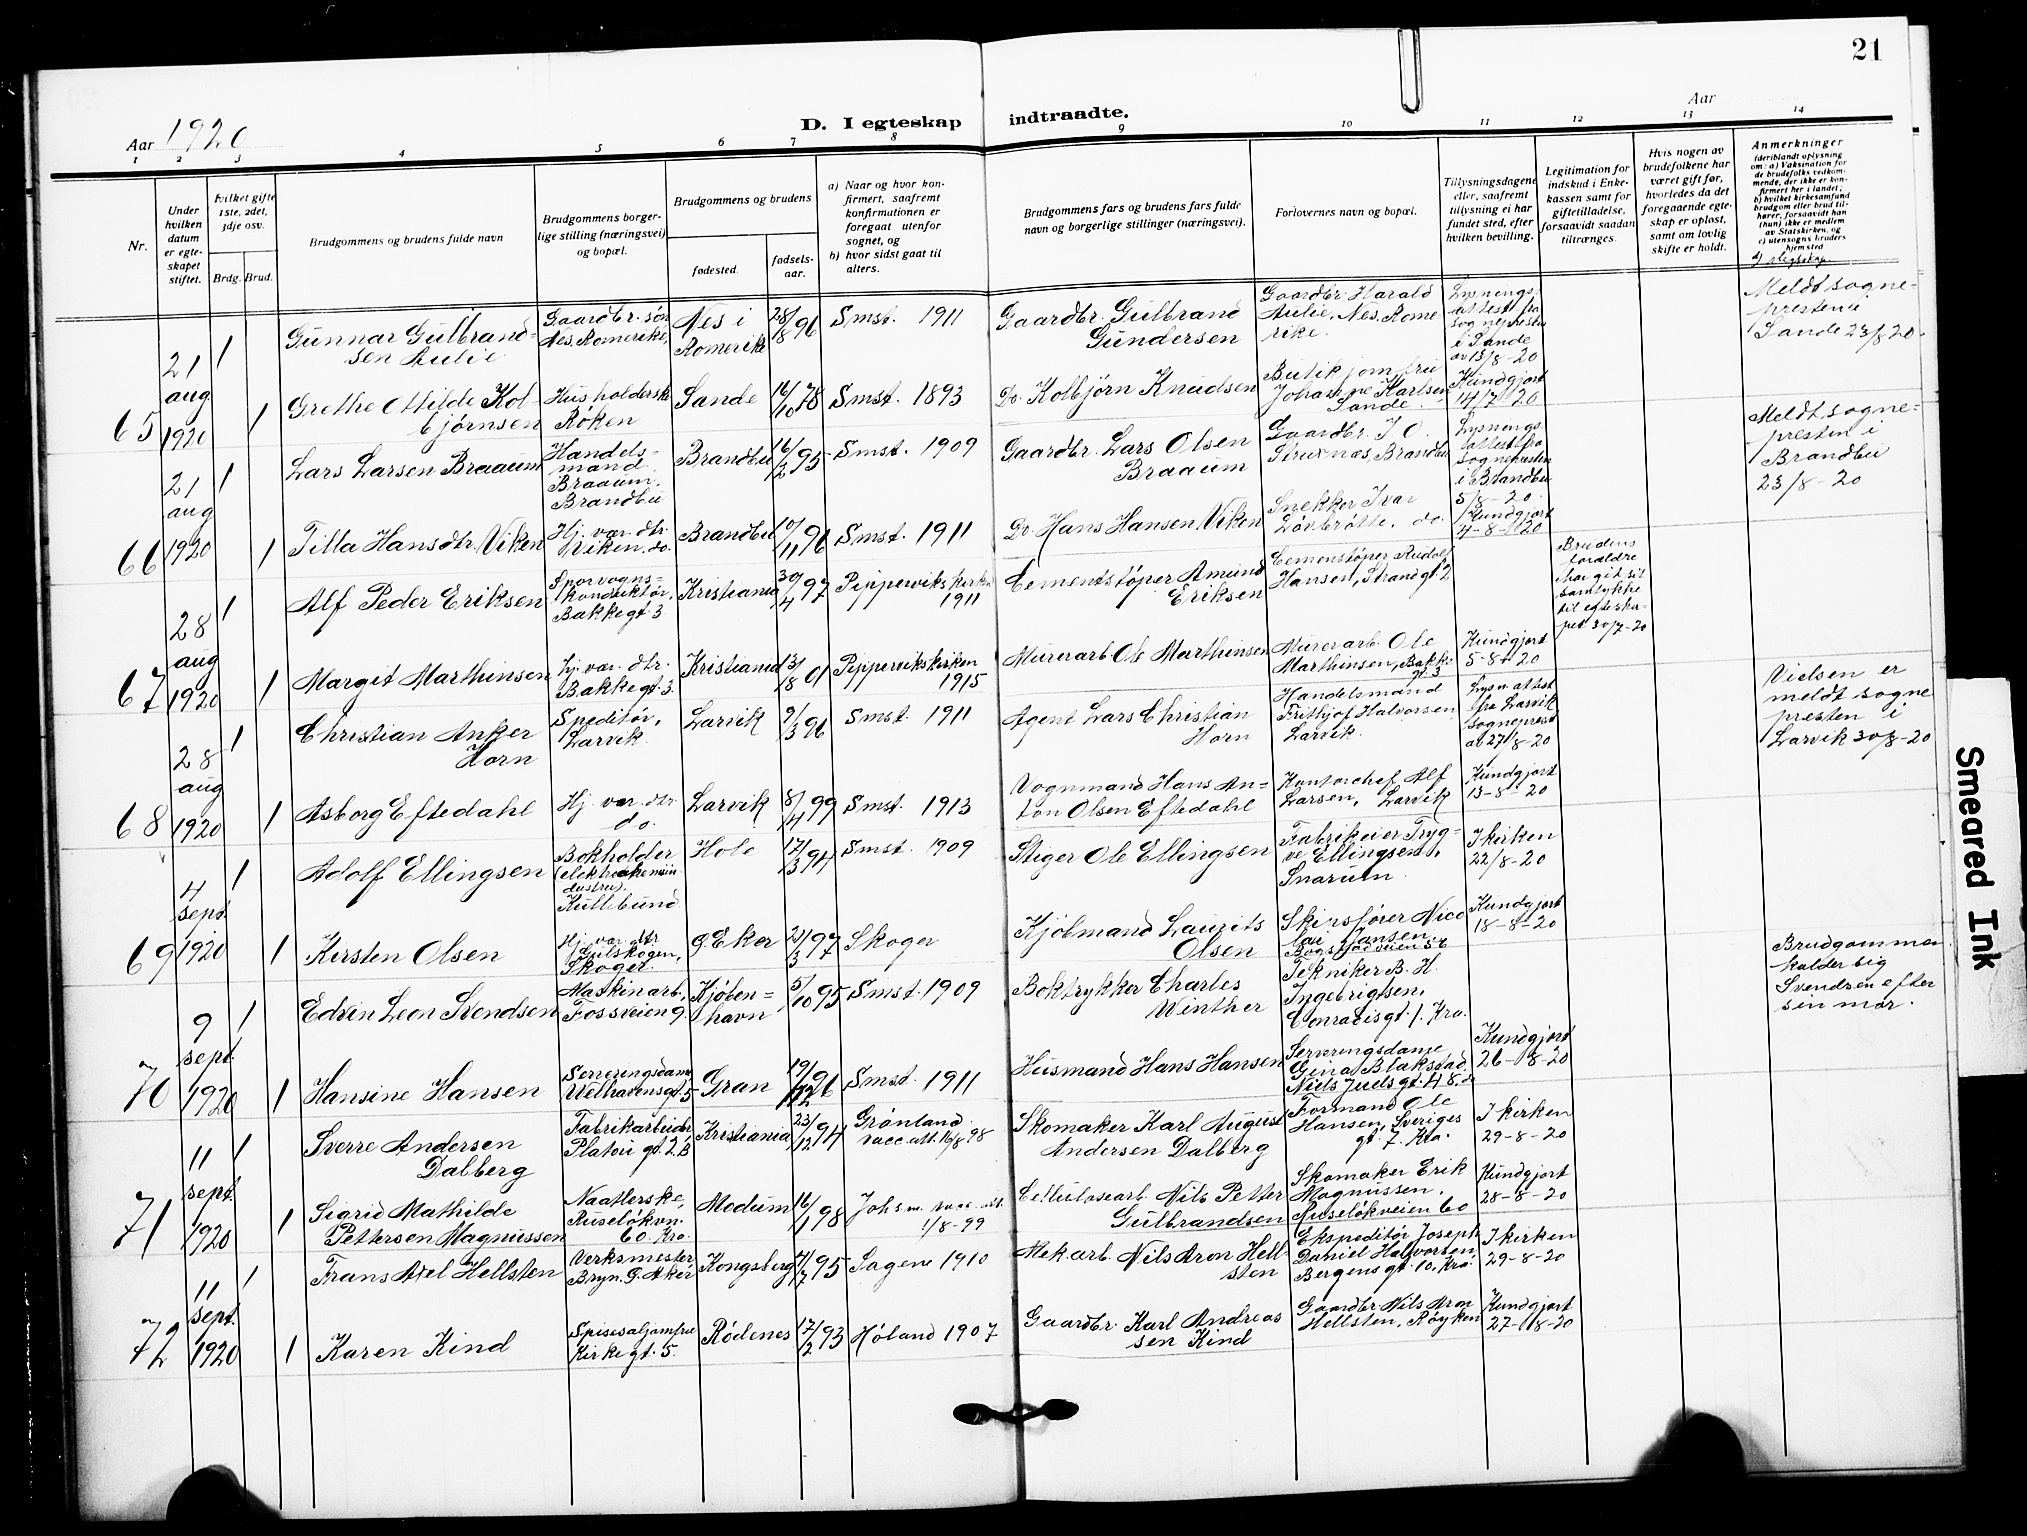 21
Aar 1920
D. I egteskap indtraadte.
Aar
1 2 3 4 5 6 7 8 9 10 11 12 13 14
Nr.
Under
hvilken
datum
er egte-
skapet
stiftet.
hvilket gifte
1ste, 2det,
3dje osv.
Brdg. Brud.
Brudgommens og brudens fulde navn
Brudgommens borger-
lige stilling (næringsvei)
og bopæl.
Brudgommens og brudens
fødested.
fødsels-
aar.
a) Naar og hvor kon-
firmert, saafremt
konfirmationen er
foregaat utenfor
sognet, og
b) hvor sidst gaat til
alters.
Brudgommens fars og brudens fars fulde
navn og borgerlige stillinger (næringsvei).
Forlovernes navn og bopæl.
Tillysningsdagene
eller, saafremt
tillysning ei har
fundet sted, efter
hvilken bevilling.
Legitimation for
indskud i Enke-
kassen samt for
giftetilladelse,
forsaavidt saadan
tiltrænges.
Hvis nogen av
brudefolkene har
været gift før,
hvorledes da det
foregaaende egte-
skap er opløst,
samt om lovlig
skifte er holdt.
Anmerkninger
(deriblandt oplysning
om: a) Vaksination for
de brudefolks vedkom-
mende, der ikke er kon-
firmert her i landet;
b) hvilket kirkesamfund
brudgom eller brud til-
hører, forsaavidt han
(hun) ikke er medlem
av Statskirken, og
c) utensogns bruders
hjemsted
d) slegtskap
65
21
aug
1920
1
Gunnar Gulbrand-
sen Aulie
Gaardbr. søn
Nes, Romerike,
Nes i
Romerike
28/8 96
Smst. 1911
Gaardbr. Gulbrand
Gundersen
Gaardbr. Harald
Aulie, Nes, Rome
rike.
Lysnings-
attest fra
sognepresten
i Sande
av 13/8-20
Meldt sogne-
presten i
Sande 23/8 20.
1
Grethe Otilde Kol-
bjørnsen
Husholderske
Røken
Sande
16/10 78
Smst. 1893
Do. Kolbjørn Knudsen
Butikjomfru
Johanne Karlsen,
Sande.
Kundgjort
14/7 20
66
21
aug
1920
1
Lars Larsen Braaum
Handels-
mand
Braaum,
Brandbu
Brandbu
16/2 95
Smst. 1909
Gaardbr. Lars Olsen
Braaum
Gaardbr. I O.
Struxnæs, Brandbu
Lysnings-
attest fra
sognepresten
i Brandbu
5/8-20.
Meldt sogne-
presten i
Brandbu
23/8-20
1
Tilla Hansdtr. Viken
Hj. vær. dtr.
Viken, do.
Brandbu
10/11 96
Smst. 1911
Do. Hans Hansen Viken
Snekker Ivar
Løvbrøtte, do.
Kundgjort
4-8-1920
67
28
aug
1920
1
Alf Peder Eriksen
Sporvogns-
konduktør,
Bakkegt. 3
Kristiania
30/4 97
Pipperviks kirke
1911
Cementstøper Amund
Eriksen
Cementstøper Rudolf
Hansen, Strandgt 2
Brudens
foraldre
har git sit
samtykke
til egteska-
pet 30/7-20
1
Margit Marthinsen
Hj. vær. dtr.
Bakkegt. 3.
Kristiania
13/8 01
Pepperviks kirken
1915
Murerarb. Ole Marthinsen
Murerarb. Ole
Marthinsen, Bakke
gt. 3
Kundgjort
5-8-20
68
28
aug
1920
1
Christian Anker
Horn
Speditør,
Larvik.
Larvik
9/3 96
Smst. 1911
Agent Lars Christian
Horn
Handelsmand
Frithjof Halvorsen,
Larvik.
Lysn. attest
fra Larvik
sogneprest
av 27/8-20
Vielsen er
meldt sogne
presten i
Larvik 30/8-20
1
Asborg Eftedahl
Hj. vær. dtr.
do.
Larvik
8/4 99
Smst. 1913
Vognmand Hans An-
ton Olsen Eftedahl
Kontorchef Alf
Larsen, Larvik
Kundgjort
13-8-20
69
4
sept
1920
1
Adolf Ellingsen
Bokholder
Kullebund
Hole
17/3 94
Smst. 1909
Stiger Ole Ellingsen
Fabrikeier Tryg-
ve Ellingsen,
Snarum.
I kirken
22/8-20
1
Kirsten Olsen
Hj. vær. dtr
Gulskogen,
Skoger.
Ø. Eker
21/3 97
Skoger
Kjøbmand Laurits
Olsen
Skipsfører Nico
lai Jansen.
Bogstadveien 56
Kundgjort
18-8-20
70
9
sept.
1920
1
Edvin Leon Svendsen
Maskinarb.,
Fossveien 9.
Kjøben-
havn
5/10 95
Smst. 1909
Boktrykker Charles
Winther
Tekniker B. H.
Ingebrigtsen,
Conradisgt. 1. Kra.
Brudgommen
kalder sig
Svendsen efter
sin mor.
1
Hansine Hansen
Serveringsdame
Welhavensgt. 5
Gran
19/12 96
Smst. 1911
Husmand Hans Hansen
Serveringsdame
Gina Blakstad
Niels Juelsgt. 48,
Kundgjort
26-8-20
71
11
sept.
1920
1
Sverre Andersen
Dalberg
Fabrikarbeider
Platou gt. 2B
Kristiania
23/12 94
Grønland
vacc. att. 16/8 98
Skomaker Karl August
Andersen Dalberg
Formand Ole
Hansen, Sveriges
gt. 7. Kra.
I kirken
29-8-20
1
Sigrid Mathilde
Pettersen Magnussen
Naatlerske,
Ruseløkvn.
60. Kra.
Modum
16/1 98
Johs m. vacc. att.
1/8-99
Cellulosearb. Nils Petter
Gulbrandsen
Skomaker Erik
Magnussen,
Ruseløkveien 60
Kundgjort
28-8-20
72
11
sept.
1920
1
Frans Axel Hellsten
Verksmester
Bryn. Ø. Aker
Kongsberg
11/7 95
Sagene 1910
Mek. arb. Nils Aron Hell-
sten
Ekspeditør Joseph
Daniel Halvorsen,
Bergensgt. 10, Kra.
I kirken
29-8-20
1
Karen Kind
Spisesaljomfru
Kirkegt. 5.
Rødenes
17/2 93
Høland 1907
Gaardbr. Karl Andreas
sen Kind
Gaardbr. Nils Aron
Hellsten, Røyken
Kundgjort
27-8-20
Smeared Ink